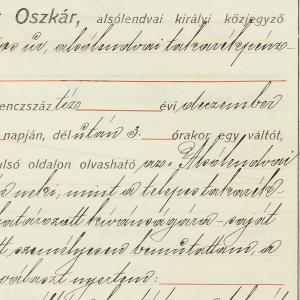 Oszkár, alsólendvai királyi közjegyző
úr, alsólendvai takarékpénz-
enczszáz tíz évi deczember
napján, délután 3 órakor egy váltót,
ulsó oldalon olvasható „az „Alsólendvai
neki, mint a telepes takarék-
határozott kívánságára - saját
személyesen bemutattam, a
választ nyertem: